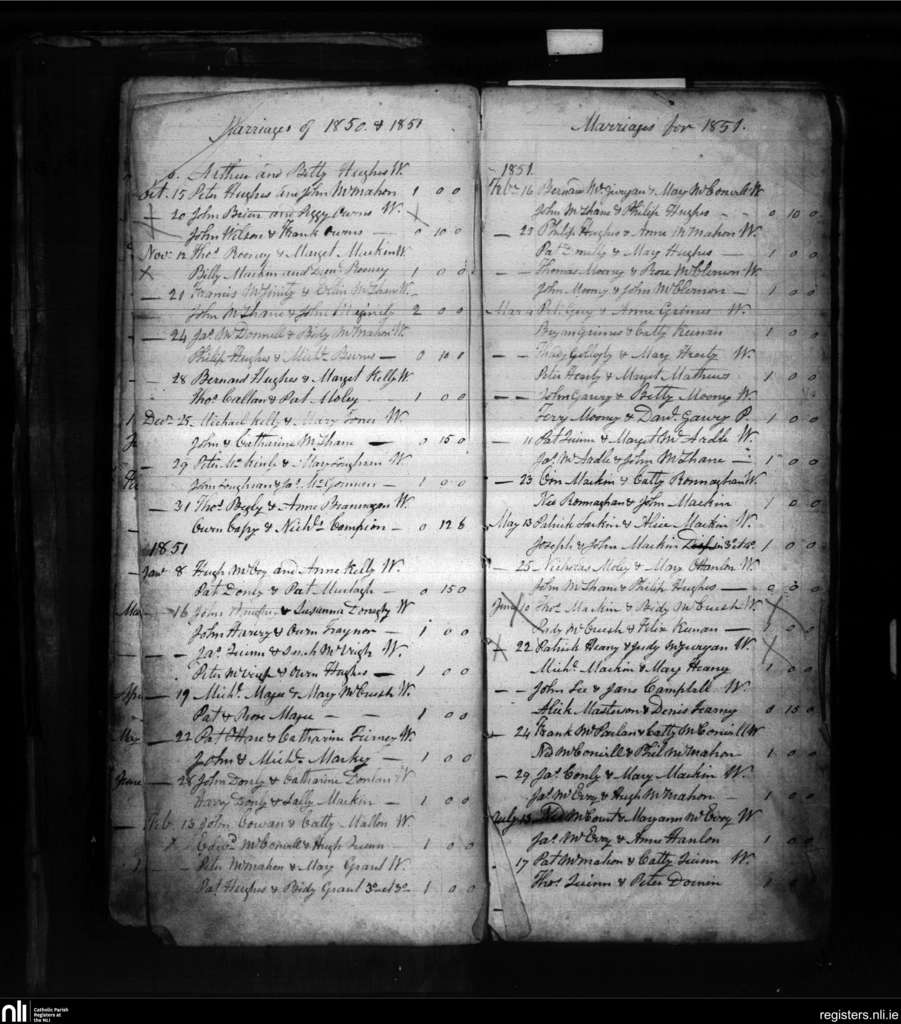 Marriages of 1850 & 1851
Arthur and Betty Hughes W.
Oct. 15 Peter Hughes and John McMahon 1 0 0
20 John Brien and Peggy Owens W.
John Wilson & Frank Owens 0 10 0
Novr 12 Thos Rooney & Marget Mackin W.
Billy Mackin and Rooney 1 0 0
21 Francis McGinity & McShane W.
John McShane & John Maginity 2 0 0
24 Jas McDonnell & Bidy McMahon W.
Philip Hughes & Michl Burns 0 10 0
28 Bernard Hughes & Marget Kelly W.
Thos Callan & Pat Moley 1 0 0
Decr 25 Michael Kelly & Mary Jones W.
John & Catharine McShane 0 15 0
29 Peter & Mary Loughran W.
John Loughran & Jas McGorman 1 0 0
31 Thos Begly & Anne Brannigan W.
Owen & Nichls Campion 0 12 6
1851
Janr 8 Hugh McCoy and Anne Kelly W.
Pat Donly & Pat Murtagh 0 15 0
16 John & Susanna W
John & Owen Traynor 1 0 0
Jas Quinn & Sarah McVeigh W.
Peter McVeigh & Owen Hughes 1 0 0
19 Michl Magee & Mary McCuesh W.
Pat & Rose Magee 1 0 0
22 Pat O'Hare & Catharine Tierney W.
John & Michl Markey 1 0 0
28 John Donly & Catharine Donlan W
Harry Donly & Sally Mackin 1 0 0
Feb 13 John Cowan & Catty Mallon W.
Edwd McConvill & Hugh Quinn 1 0 0
Peter McMahon & Mary Grant W.
Pat Hughes & Bidy Grant 3o et 3o 1 0 0
Marriages for 1851.
1851
Febr 16 Bernard & Mary McConvill W
John McShane & Philip Hughes 0 10 0
23 Philip Hughes & Anne McMahon W.
Pat & Mary Hughes 1 0 0
Thomas Mooney & Rose McClernon W.
John Mooney & John McClernon 1 0 0
Mar 4 Pat & Anne Grimes W.
Bryan Grimes & Catty Keenan 1 0 0
Gollogly & Mary Hearty W.
Peter Hearty & Marget Mathews 1 0 0
John Garvey & Betty Mooney W.
Terry Mooney & Danl Garvey P 1 0 0
11 Pat Quinn & Marget McArdle W.
Jas McArdle & John McShane 1 0 0
23 Con Mackin & Catty Ronnaghan W.
Ronnaghan & John Mackin 1 0 0
May 13 Patrick Larkin & Alice Mackin W.
Joseph & John Mackin 1 0 0
25 Nicholas Moley & Mary O'Hanlon W.
John McShane & Philip Hughes
June 10 Thos Mackin & Bidy McCuesh W.
McCuesh & Felix Keenan 1 0 0
22 Patrick Heany & Judy W.
Michl Mackin & Mary Heany 1 0 0
John Lee & Jane Campbell W.
Alick Masterson & Denis Fearny 0 15 0
24 Frank McParlan & Catty McConvill W
Ned McConvill & Phil McMahon 1 0 0
29 Jas Conly & Mary Mackin W.
Jas McEvoy & Hugh McMahon 1 0 0
July 13 Ned McCourt & Maryann McEvoy W
Jas McEvoy & Anne Hanlon 1 0 0
17 Pat McMahon & Catty Quinn W.
Thos Quinn & Peter 1
nli
Catholic Parish
Registers at
the NLI
registers.nli.ie